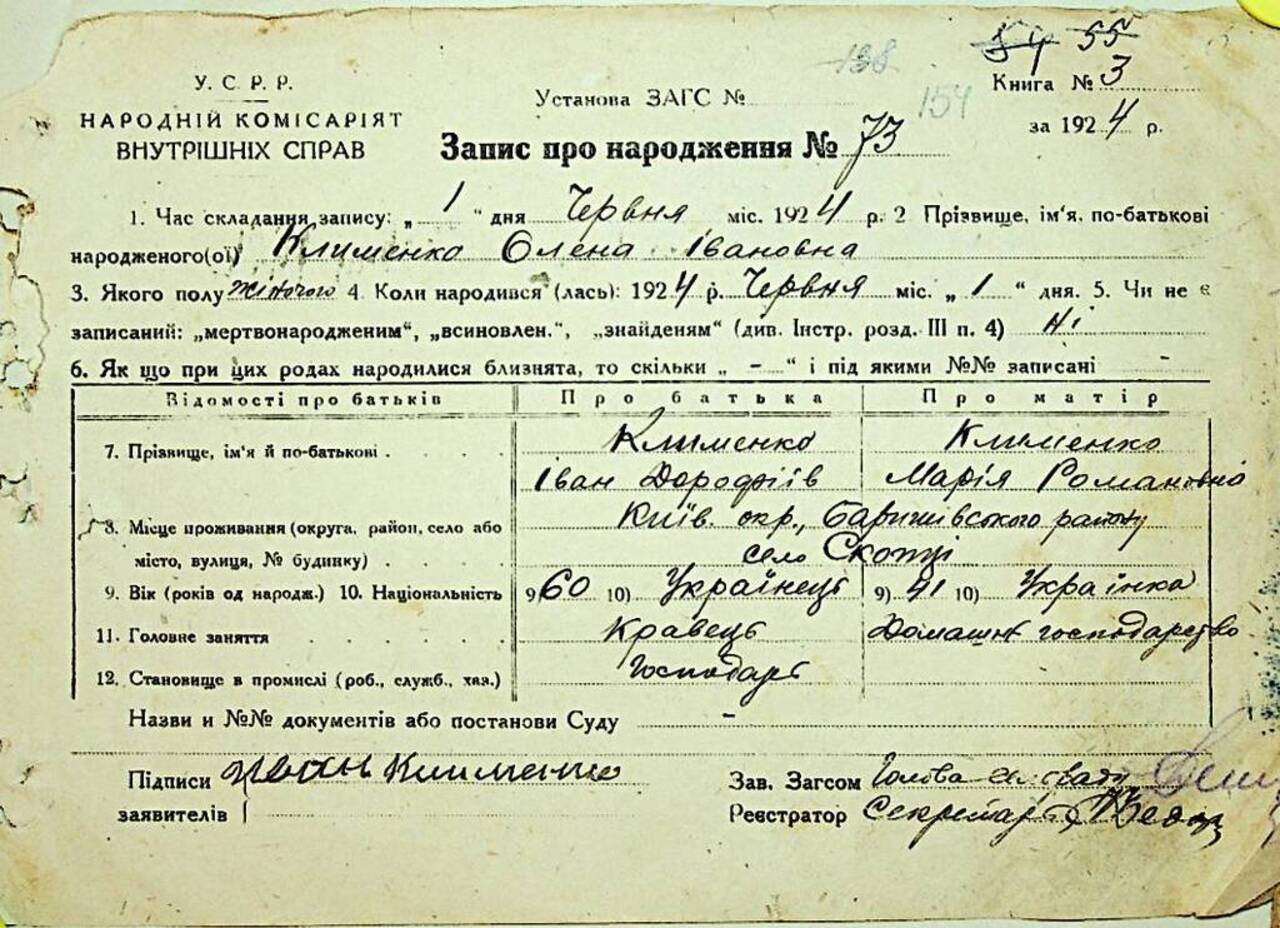 54 55
138
У. С. Р. Р.
НАРОДНІЙ КОМІСАРІЯТ
ВНУТРІШНІХ СПРАВ
Установа ЗАГС №
154
Книга № 3
за 1924 р.
Запис про народження № 73
1. Час складання запису: „ 1 " дня Червня міс. 1924 р. 2 Прізвище, ім'я, по-батькові
народженого(ої) Клименко Олена Івановна
3. Якого полу жіночого 4. Коли народився (лась): 1924 р. Червня міс. „ 1 " дня. 5. Чи не є
записаний: „мертвонародженим", „всиновлен.", „знайденям" (див. Інстр. розд. III п. 4) Ні
6. Як що при цих родах народилися близнята, то скільки „ - " і під якими №№ записані -
Відомості про батьків Про батька Про матір
7. Прізвище, ім'я й по-батькові . Клименко Клименко
Іван Дорофіїв Марія Романовна
8. Місце проживання (округа, район, село або Київ. окр., Баришівського району
місто, вулиця, № будинку) . село Скопці
9. Вік (років од народж.) 10. Національність 9) 60 10) Українець 9) 41 10) Українка
11. Головне заняття Кравець Домашнє господарство
12. Становище в промислі (роб., служб., хаз.) Господарь
Назви и №№ документів або постанови Суду -
Підписи Иван Клименко
заявителів
Зав. Загсом Голова сельради
Реєстратор Секретарь